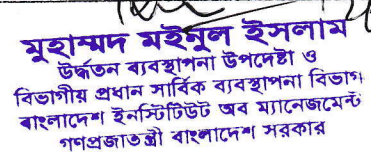 মুহাম্মদ মইনুল ইসলাম
উর্দ্ধতন ব্যবস্থাপনা উপদেষ্টা ও
বিভাগীয় প্রধান সার্বিক ব্যবস্থাপনা বিভাগ
বাংলাদেশ ইনস্টিটিউট অব ম্যানেজমেন্ট
গণপ্রজাতন্ত্রী বাংলাদেশ সরকার